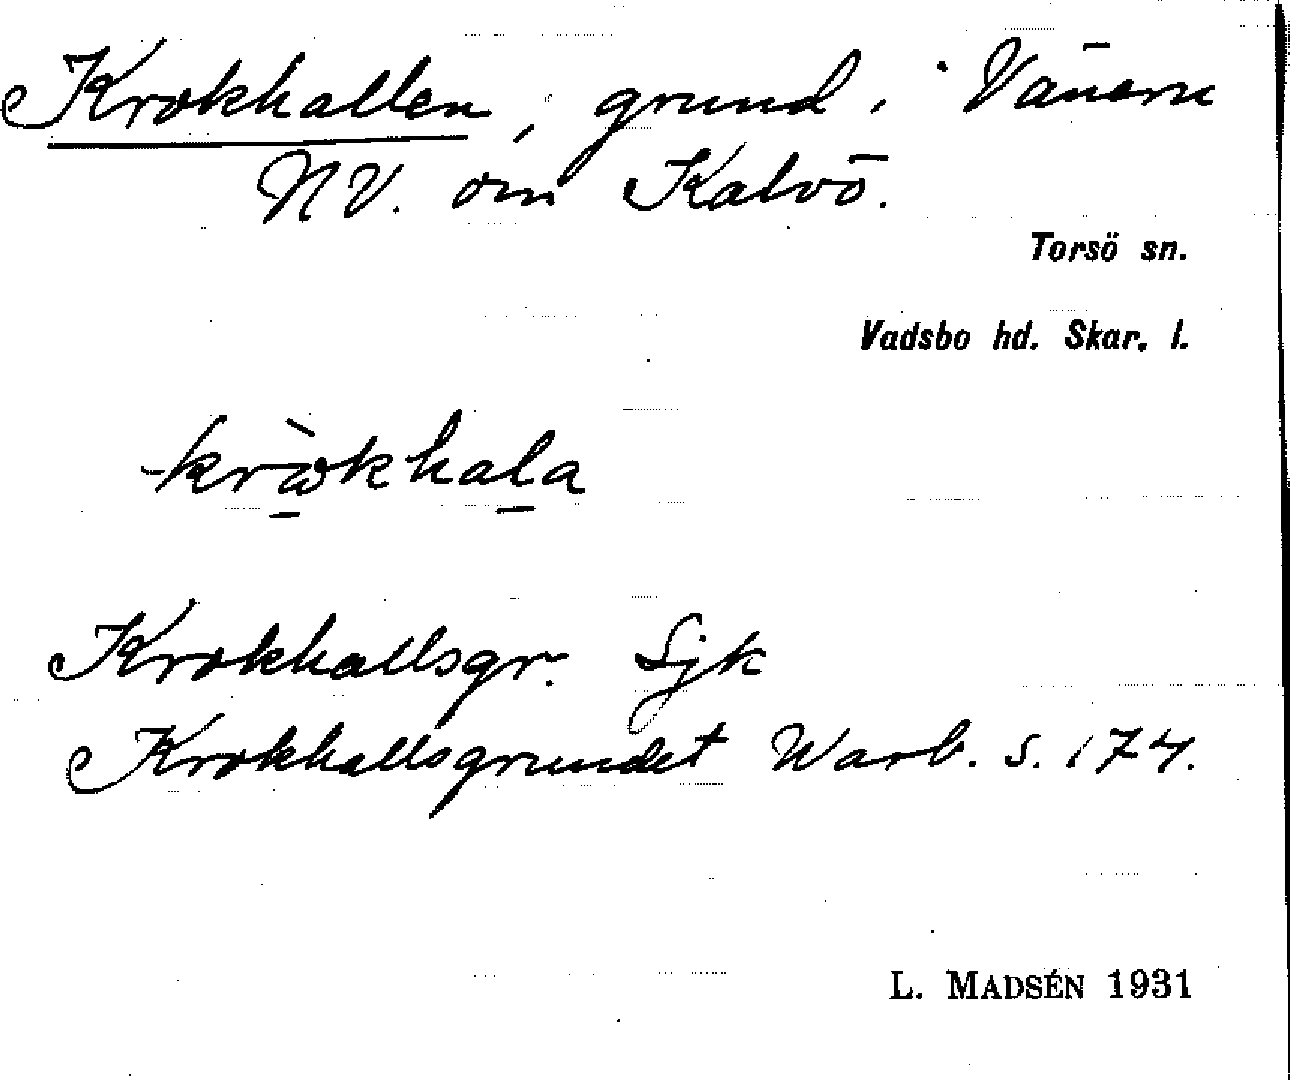 Krokhallen, grund i Vänern
NV. om Kalvö.
Torsö sn.
Vadsbo hd. Skar. l.
kròkhala
Krokhallsgr. Sjk
Krokhallsgrundet Warb. s. 174.
L. MADSÉN 1931